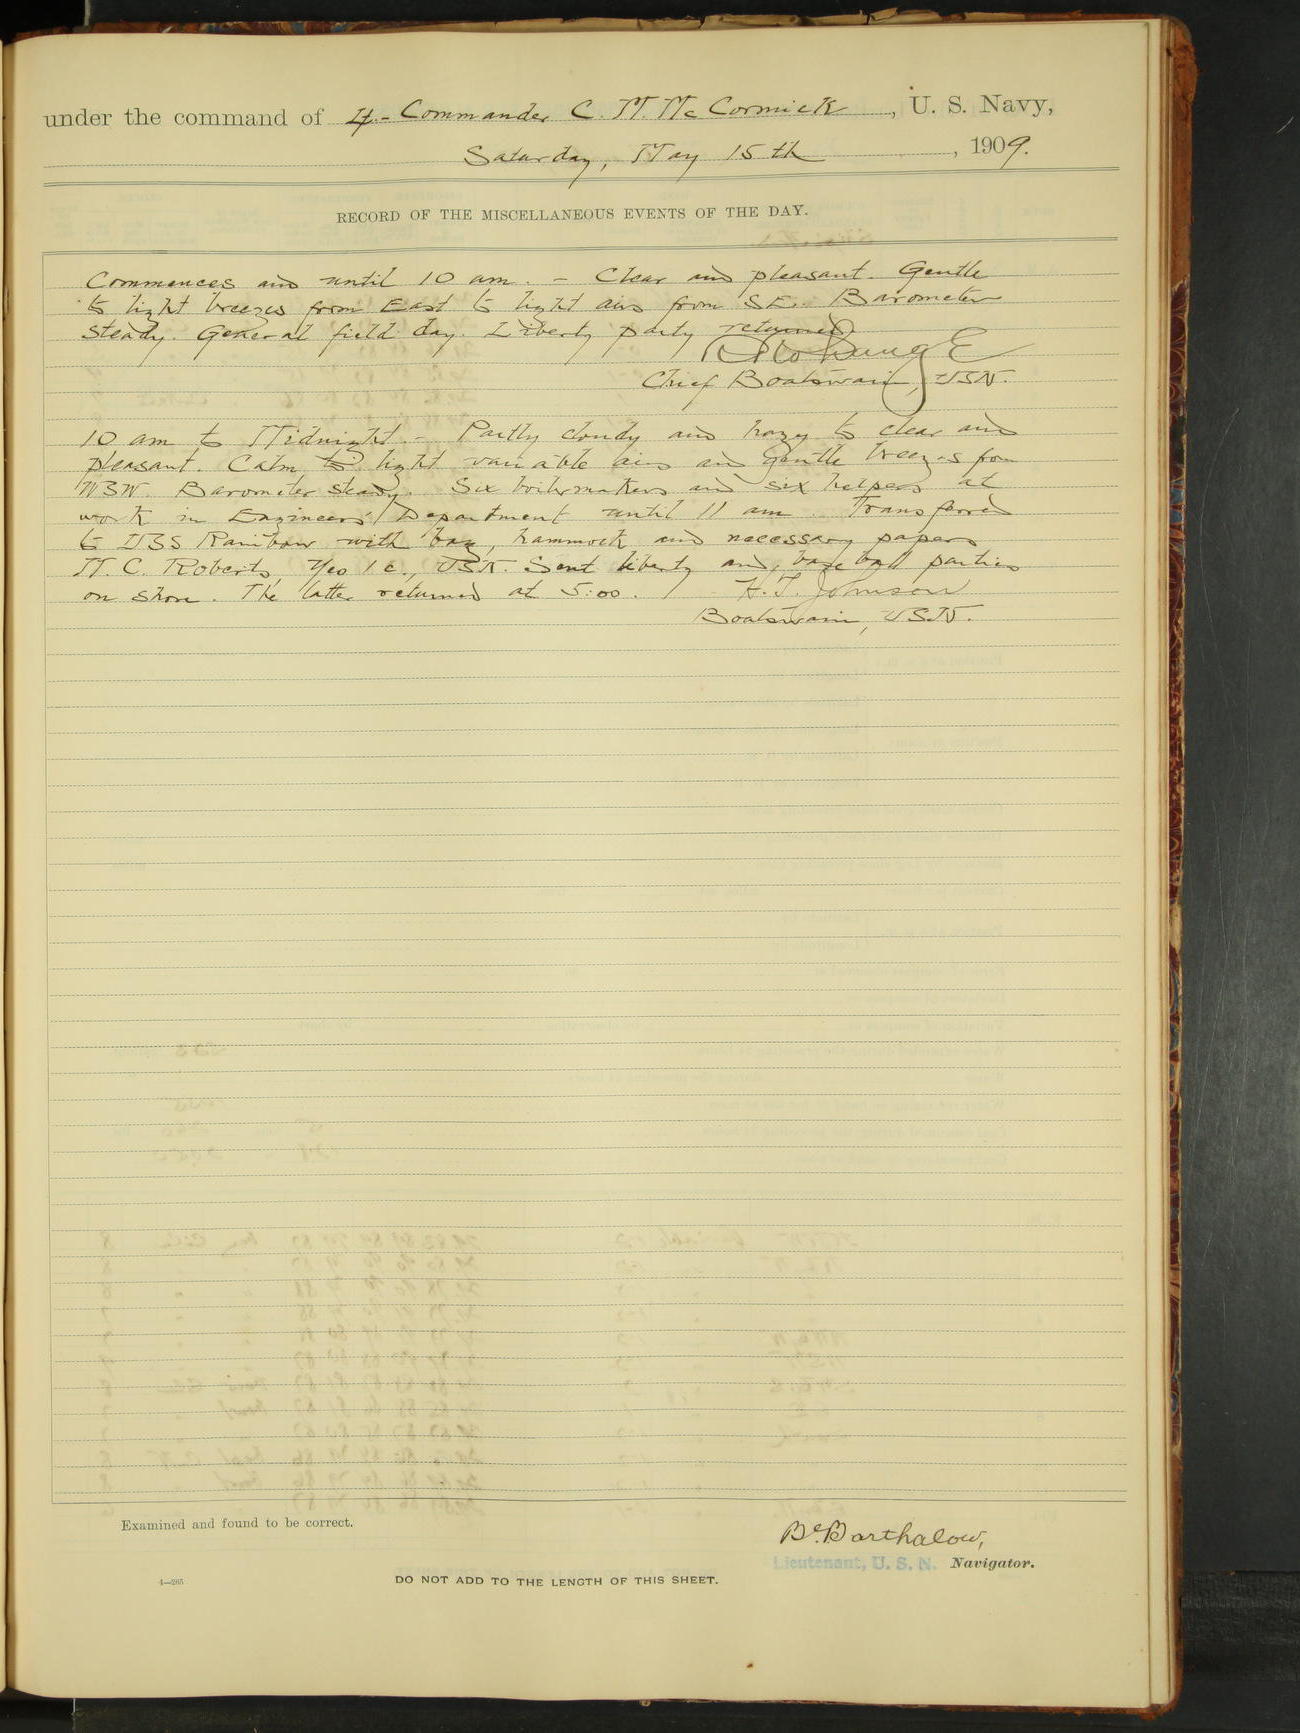 under the command of Lt.-Commander C. M. McCormick, U. S. Navy,
Saturday, May 15th, 1909.
RECORD OF THE MISCELLANEOUS EVENTS OF THE DAY.
Commences and until 10 am. - Clear and pleasant. Gentle
to light breezes from East to light airs from SE. Barometer
steady. General field day. Liberty party returned.
Chief Boatswain, USN.
10 am to Midnight. - Partly cloudy and hazy to clear and
pleasant. Calm to light variable airs and gentle breezes from
WSW. Barometer steady. Six boilermakers and six helpers at
work in Engineers' Department until 11 am. Transferred
to USS Rainbow with bag, hammock and necessary papers
M. C. Roberts, Yeo 1c., USN. Sent liberty and base ball parties
on shore. The latter returned at 5:00. H. T. Johnson
Boatswain, USN.
Examined and found to be correct.
Barthalow,
Lieutenant, U. S. N. Navigator.
4—265
DO NOT ADD TO THE LENGTH OF THIS SHEET.